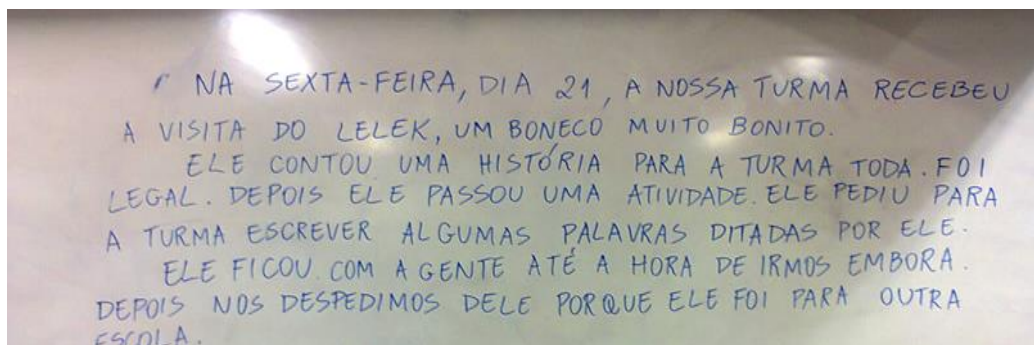 NA SEXTA-FEIRA, DIA 21, A NOSSA TURMA RECEBEU
A VISITA DO LELEK, UM BONECO MUITO BONITO.
ELE CONTOU UMA HISTÓRIA PARA A TURMA TODA. FOI
LEGAL. DEPOIS ELE PASSOU UMA ATIVIDADE. ELE PEDIU PARA
A TURMA ESCREVER ALGUMAS PALAVRAS DITADAS POR ELE.
ELE FICOU COM A GENTE ATÉ A HORA DE IRMOS EMBORA.
DEPOIS NOS DESPEDIMOS DELE PORQUE ELE FOI PARA OUTRA
ESCOLA.